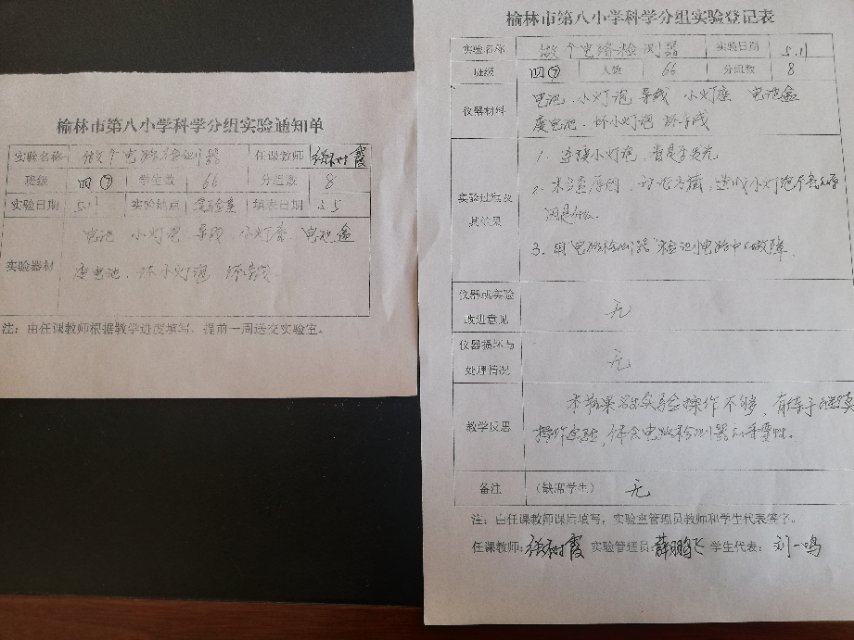 榆林市第八小学科学分组实验通知单
实验名称 做个电路检测器 任课教师
班级 四⑦ 学生数 66 分组数 8
实验日期 5.11 实验地点 实验室 填表日期 5.5
实验器材 电池 小灯泡 导线 小灯座 电池盒
废电池、坏小灯泡 坏导线
注：由任课教师根据教学进度填写，提前一周送交实验室。
榆林市第八小学科学分组实验登记表
实验名称 做个电路检测器 实验日期 5.11
班级 四⑦ 人数 66 分组数 8
仪器材料 电池、小灯泡 导线 小灯座 电池盒
废电池、坏小灯泡 坏导线
实验过程及其结果
1、连接小灯泡，看是否发光
2、 讨论方法，造成小灯泡不亮的原
因是什么
3、用电路检测器检测电路中的故障
仪器或实验改进意见 无
仪器损坏与处理情况 无
教学反思 实验操作不够，有待于继续
操作实验，体会电路检测器的重要性。
备注 （缺席学生） 无
注：由任课教师课后填写，实验室管理员教师和学生代表签字。
任课教师： 实验管理员：薛鹏飞 学生代表：刘一鸣